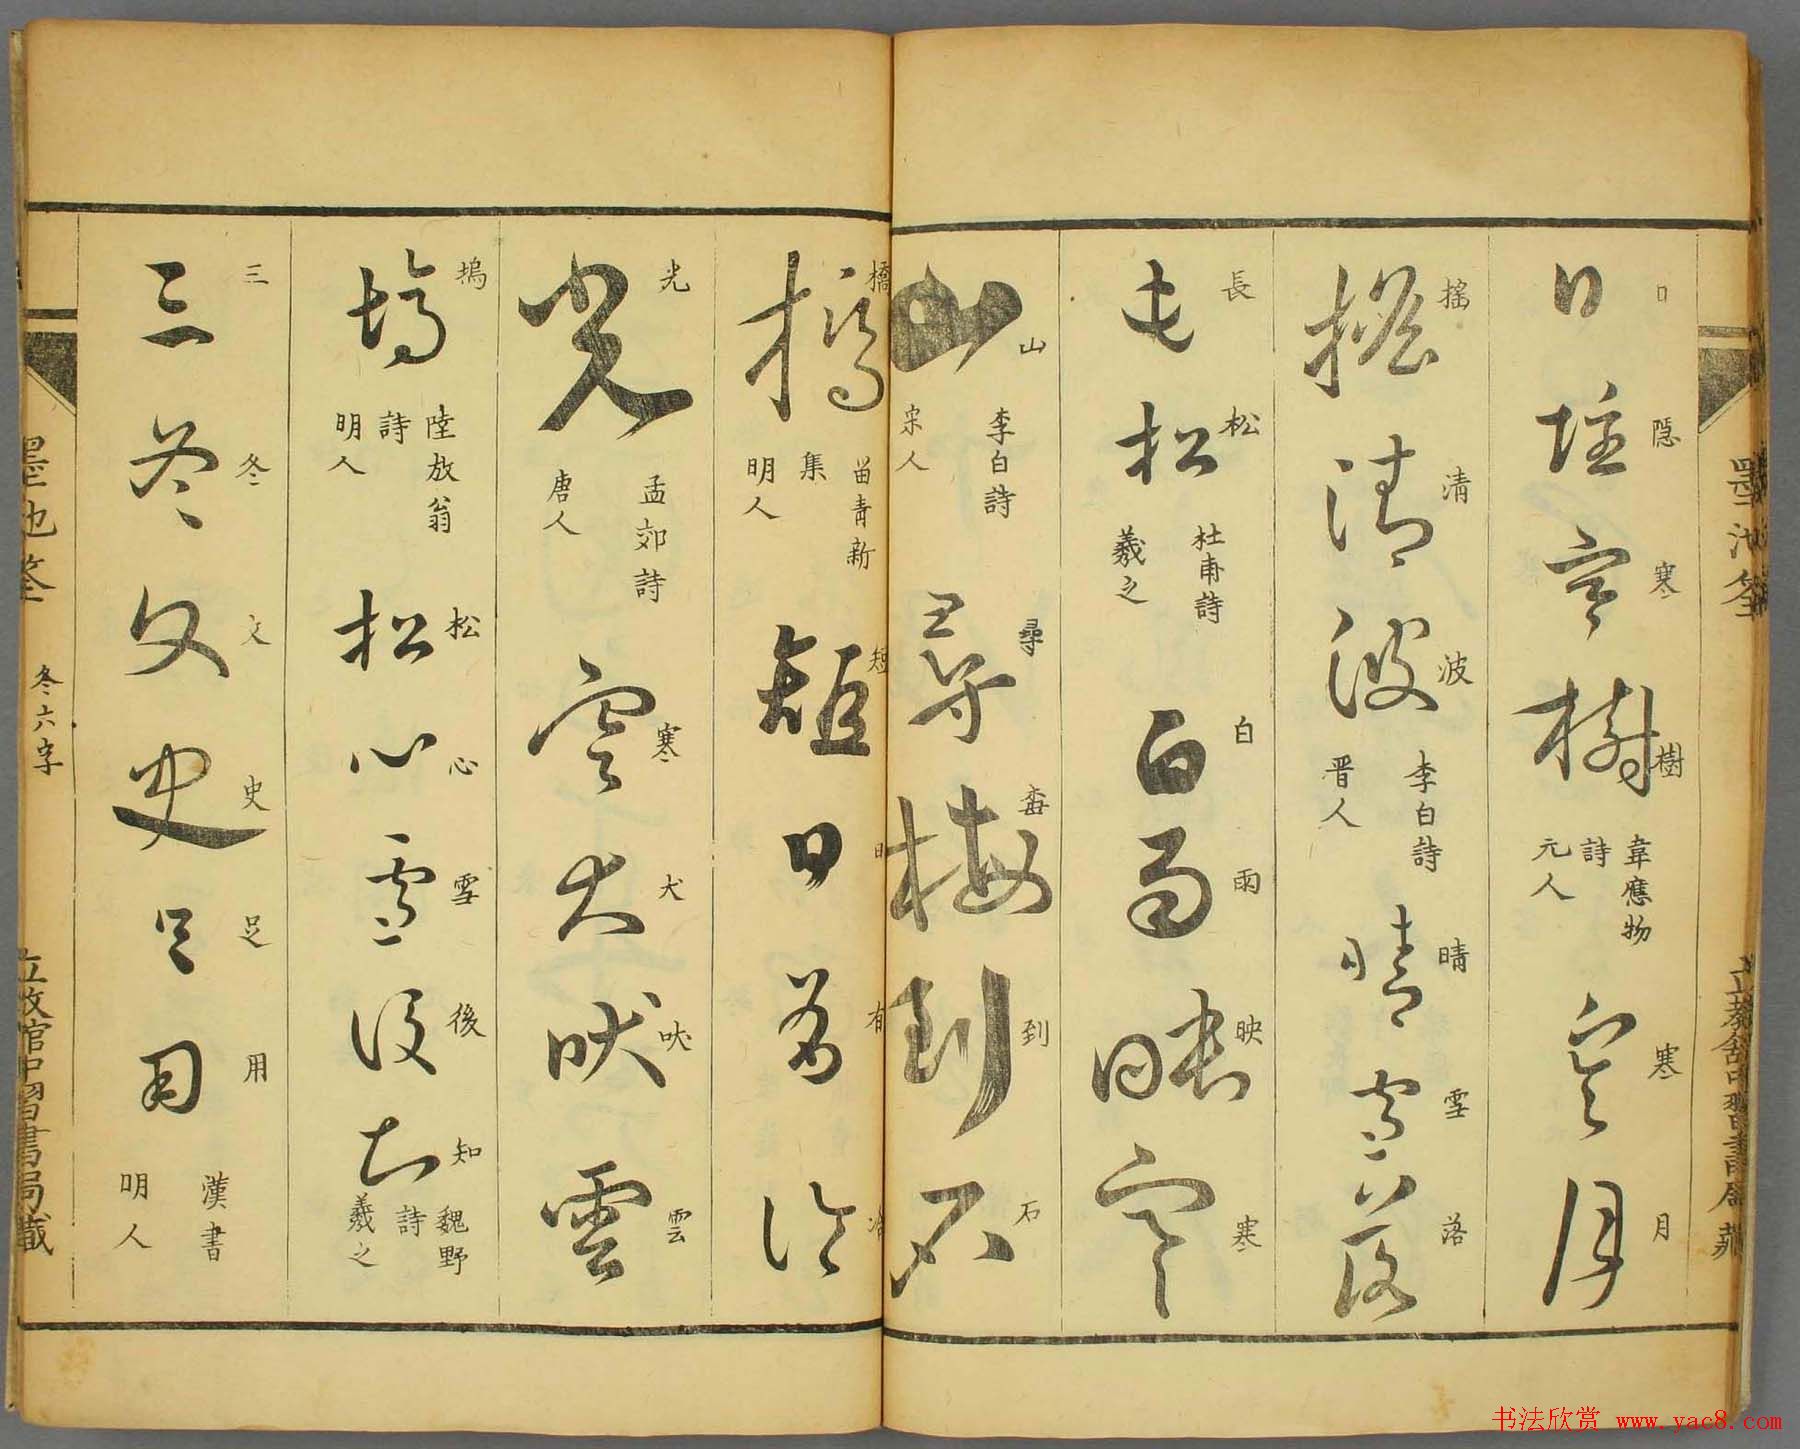 口隐寒樹 韋應物詩 元人 寒月
搖清波 李白詩 晋人 晴雪落
長松 杜甫詩 羲之 白雨映寒
山 李白詩 宋人 尋梅到石
橋 苗青新集 明人 短日有冷
光 孟郊詩 唐人 寒犬吠雲
塢 陸放翁詩 明人 松心雪後知 魏野詩 羲之
三冬文史足用 漢書 明人
墨池
冬六字
書法欣赏 www.yac8.com